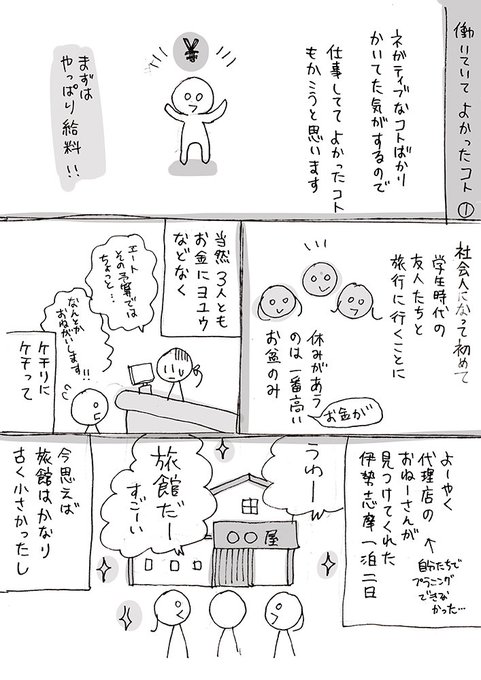 働いていてよかったコト①
ネガティブなコトばかり
かいてた気がするので
仕事しててよかったコト
もかこうと思います
¥
まずは
やっぱり給料!!
社会人になって初めて
学生時代の
友人たちと
旅行に行くことに
休みがあう
のは一番高い
お盆のみ
お金が
当然3人とも
お金にヨユウ
などなく
エート
その予算では
ちょっと…
なんとか
おねがいします!!
ケチりに
ケチって
よーやく
代理店の
おねーさんが
見つけてくれた
伊勢志摩一泊二日
↑
自分たちで
プランニング
できな
かった…
うわー
旅館だー
すごーい
○○屋
今思えば
旅館はかなり
古く小さかったし